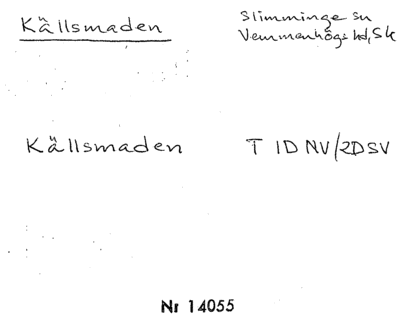 Källsmaden
Slimminge sn
Vemmenhögs hd, Sk
Källsmaden
T 1D NV/2D SV
Nr 14055